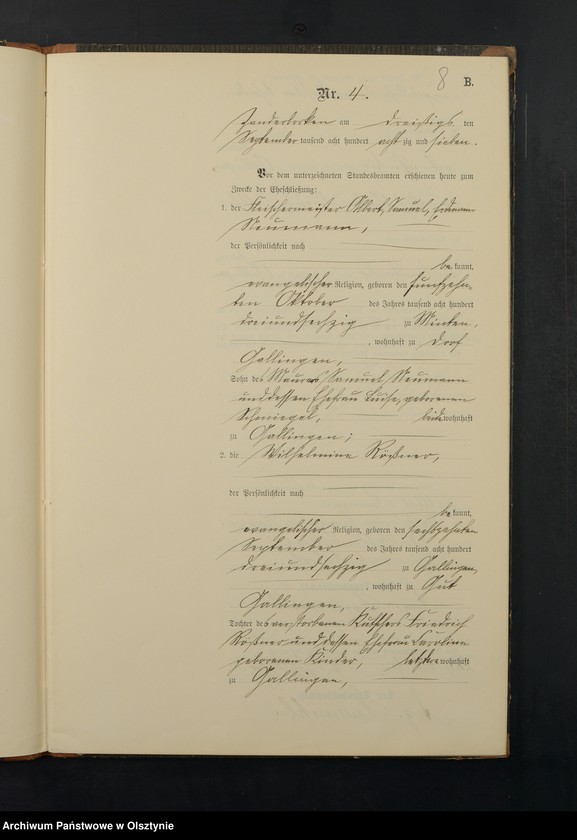 8
B.
Nr. 4.
am dreißigs ten
September tausend acht hundert acht zig und sieben.
Vor dem unterzeichneten Standesbeamten erschienen heute zum
Zwecke der Eheschließung:
1. der Fleischermeister Albert, Samuel, Erdmann
Neumann,
der Persönlichkeit nach
be kannt,
evangelischer Religion, geboren den fünfzehn-
ten Oktober des Jahres tausend acht hundert
dreiundsechzig zu Minten,
, wohnhaft zu Dorf
Gallingen,
Sohn des Maurers Samuel Neumann
und dessen Ehefrau Luise, geborenen
Schmiegel, beide wohnhaft
zu Gallingen;
2. die Wilhelmine Rößner,
der Persönlichkeit nach
be kannt,
evangelischer Religion, geboren den sechszehnten
September des Jahres tausend acht hundert
dreiundsechzig zu Gallingen,
, wohnhaft zu Gut
Gallingen,
Tochter des verstorbenen Kutschers Friedrich
Rößner und dessen Ehefrau Caroline
geborenen Kinder, letztere wohnhaft
zu Gallingen,
Archiwum Państwowe w Olsztynie